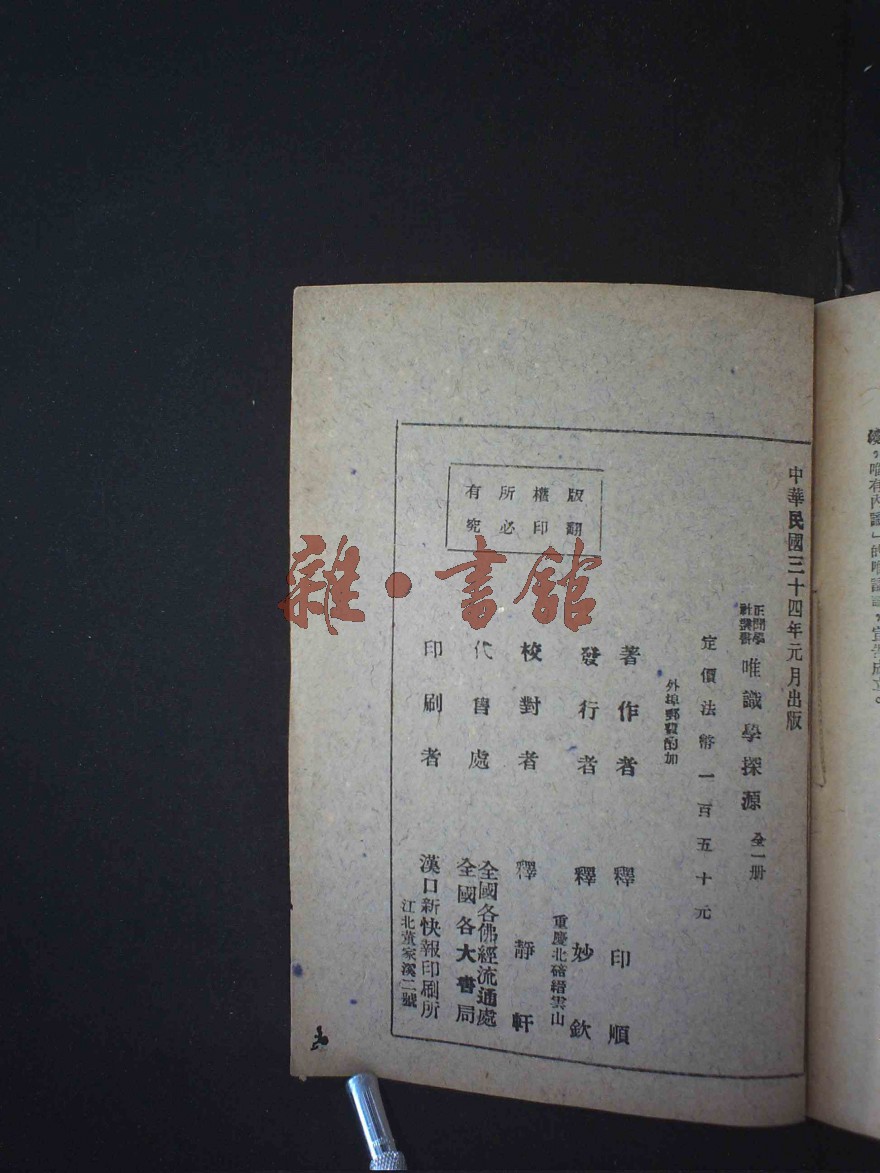 中華民國三十四年元月出版
正聞學社叢書
唯識學探源 全一册
定價法幣一百五十元
外埠郵費酌加
著作者 釋印順
發行者 釋妙欽
重慶北碚縉雲山
校對者 釋靜軒
代售處 全國各佛經流通處
全國各大書局
印刷者 漢口新快報印刷所
江北董家溪二號
版權所有
翻印必究
雜·書館